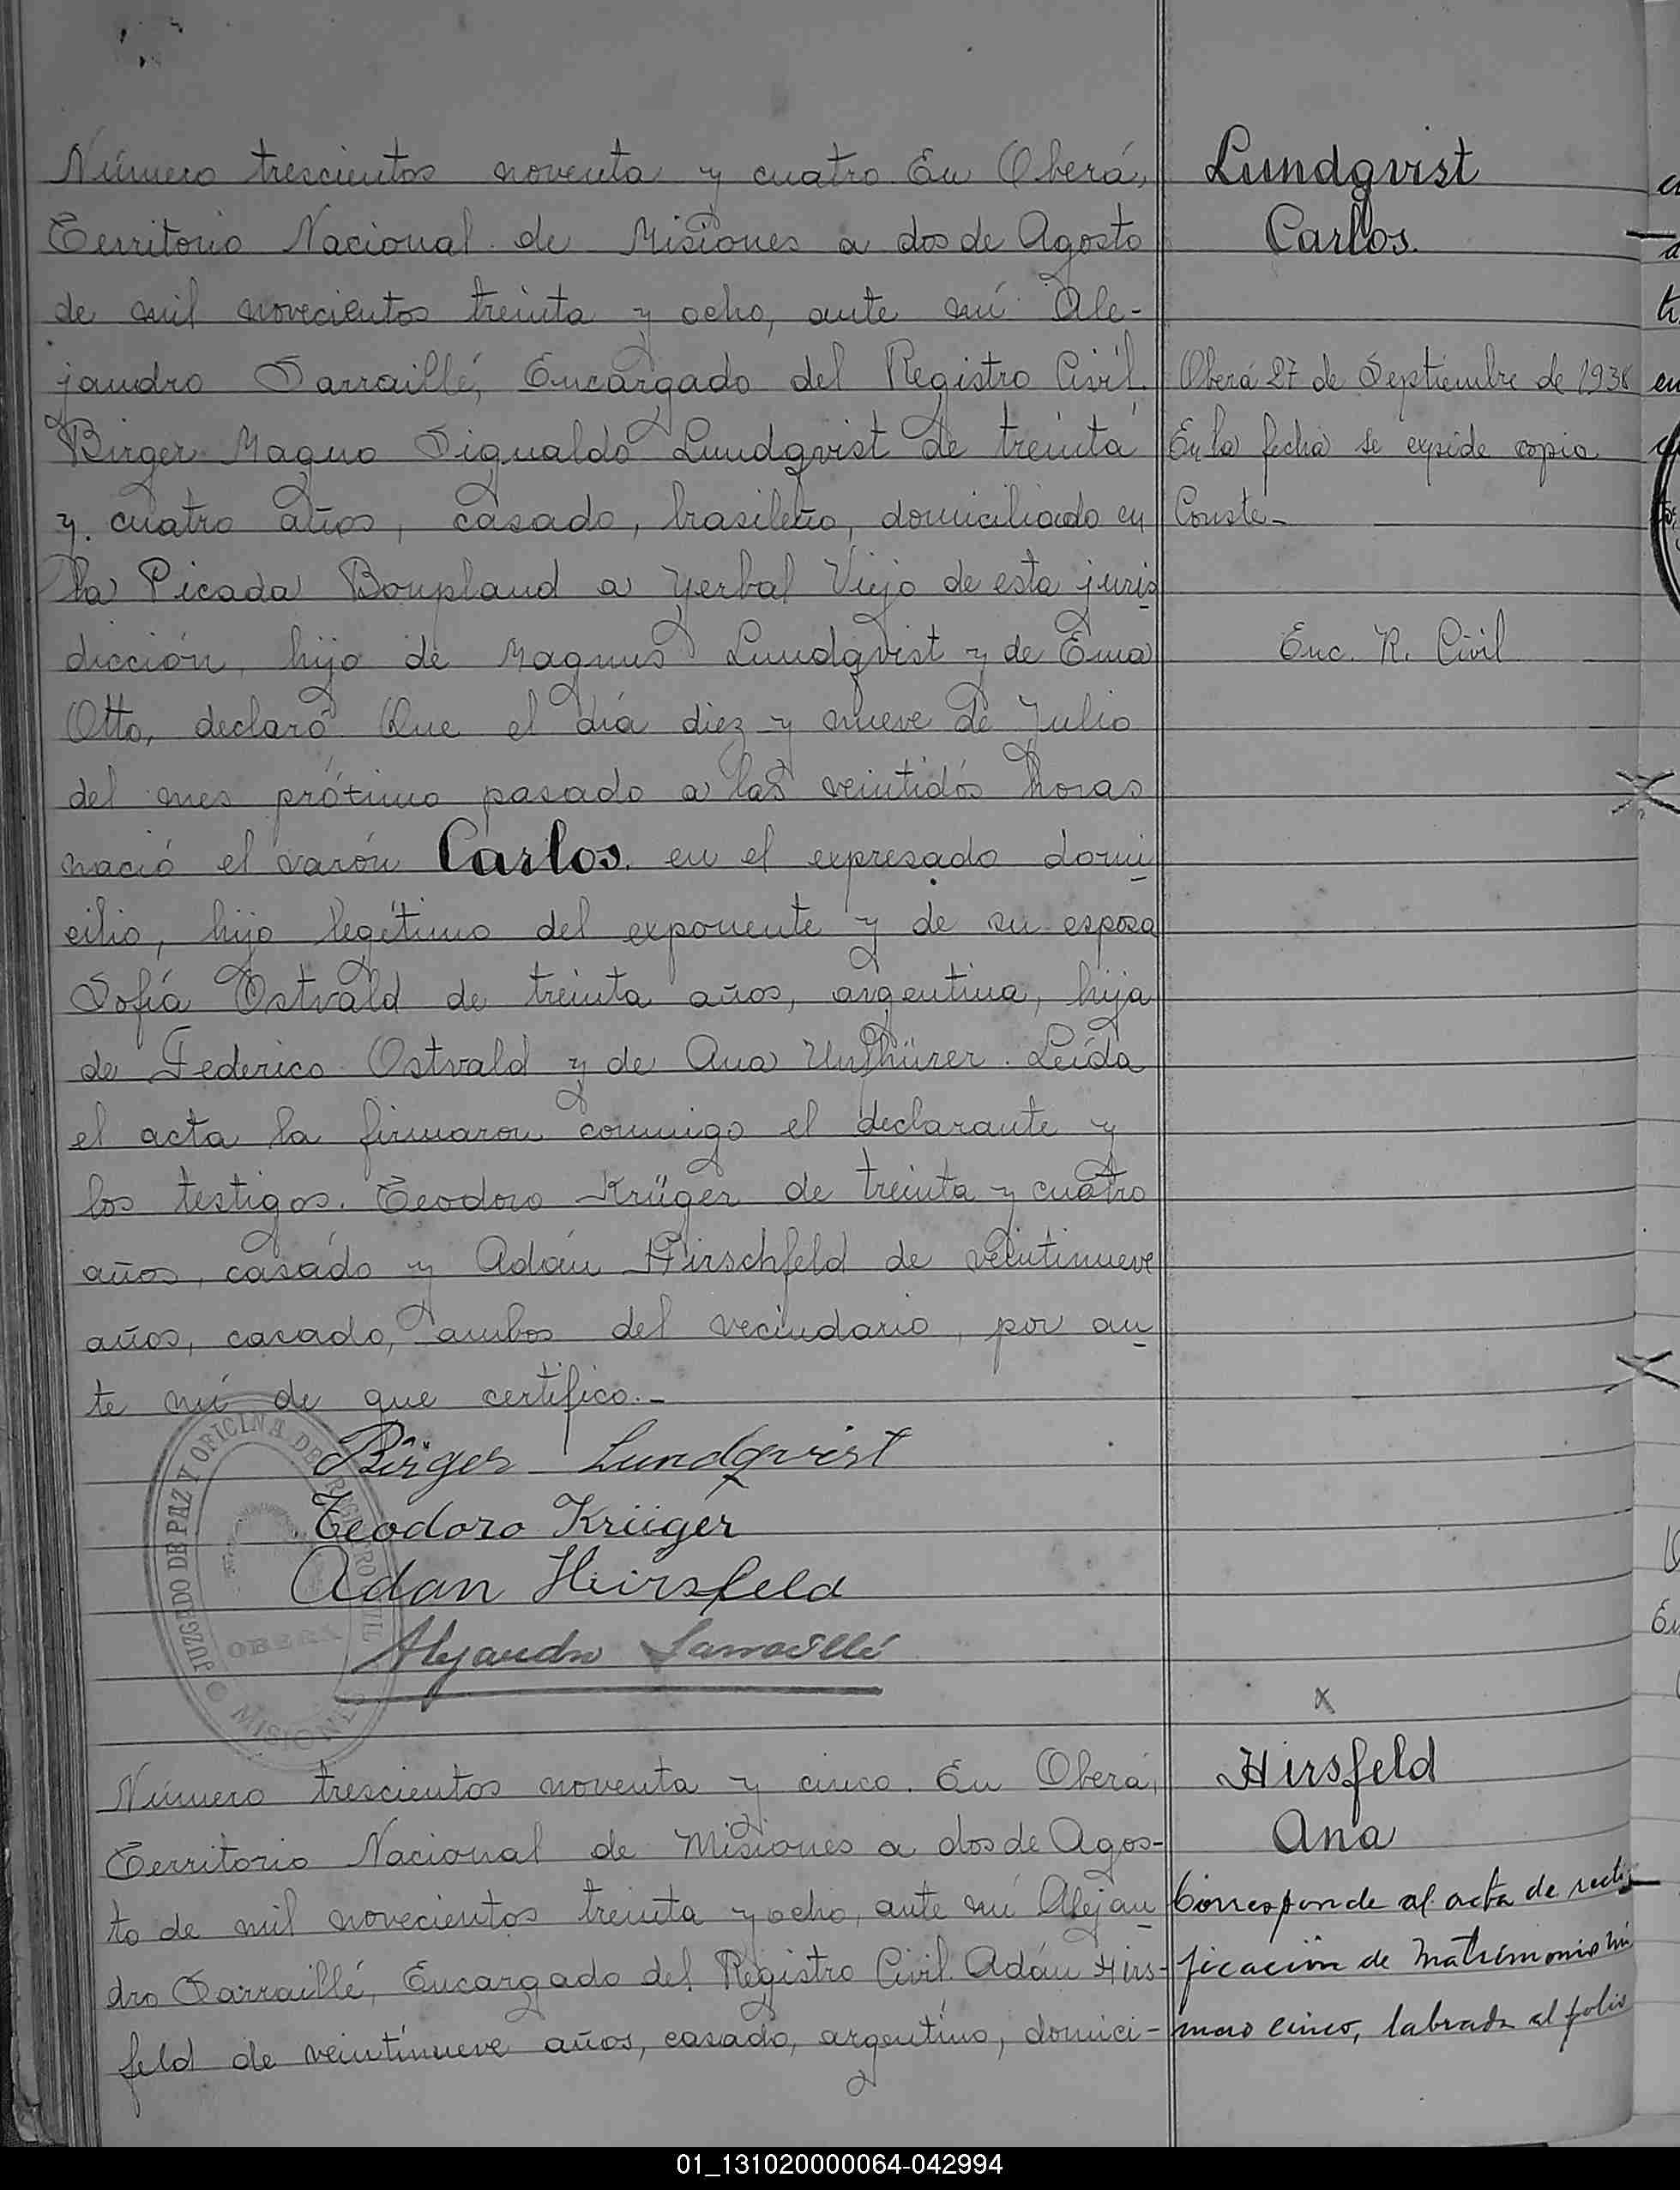 Número trescientos noventa y cuatro. En Oberá,
Territorio Nacional de Misiones a dos de Agosto
de mil novecientos treinta y ocho, ante mí Ale-
jandro Sarraillé, Encargado del Registro Civil.
Birger Magno Sigualdo Lundqvist de treinta
y cuatro años, casado, brasileño, domiciliado en
la Picada Bonpland a Yerbal Viejo de esta juris
dicción, hijo de Magnus Lundqvist y de Ema
Otto, declaró Que el día diez y nueve de Julio
del mes próximo pasado a las veintidós horas
nació el varón Carlos. en el expresado domi
cilio, hijo legítimo del exponente y de su esposa
Sofía Ostvald de treinta años, argentina, hija
de Federico Ostvald y de Ana. Leída
el acta la firmaron conmigo el declarante y
los testigos. Teodoro Krüger de treinta y cuatro
años, casado y Adán Hirschfeld de veintinueve
años, casado, ambos del vecindario, por an
te mí de que certifico.-
Birger Lundqvist
Teodoro Krüger
Adan Hirsfeld
Alejandro Sarraillé
JUZGADO DE PAZ Y OFICINA DE REGISTRO CIVIL
OBERA
MISIONES
Número trescientos noventa y cinco. En Oberá,
Territorio Nacional de Misiones a dos de Agos-
to de mil novecientos treinta y ocho, ante mí Alejan
dro Sarraillé, Encargado del Registro Civil. Adán Hirs-
feld de veintinueve años, casado, argentino, domici-
Lundqvist
Carlos.
Oberá 27 de Septiembre de 1938
En la fecha se expide copia
Conste-
Enc. R. Civil
x
Hirsfeld
Ana
Corresponde al acta de recti
ficación de Matrimonio nú
mero cinco, labrada al folio
01_131020000064-042994